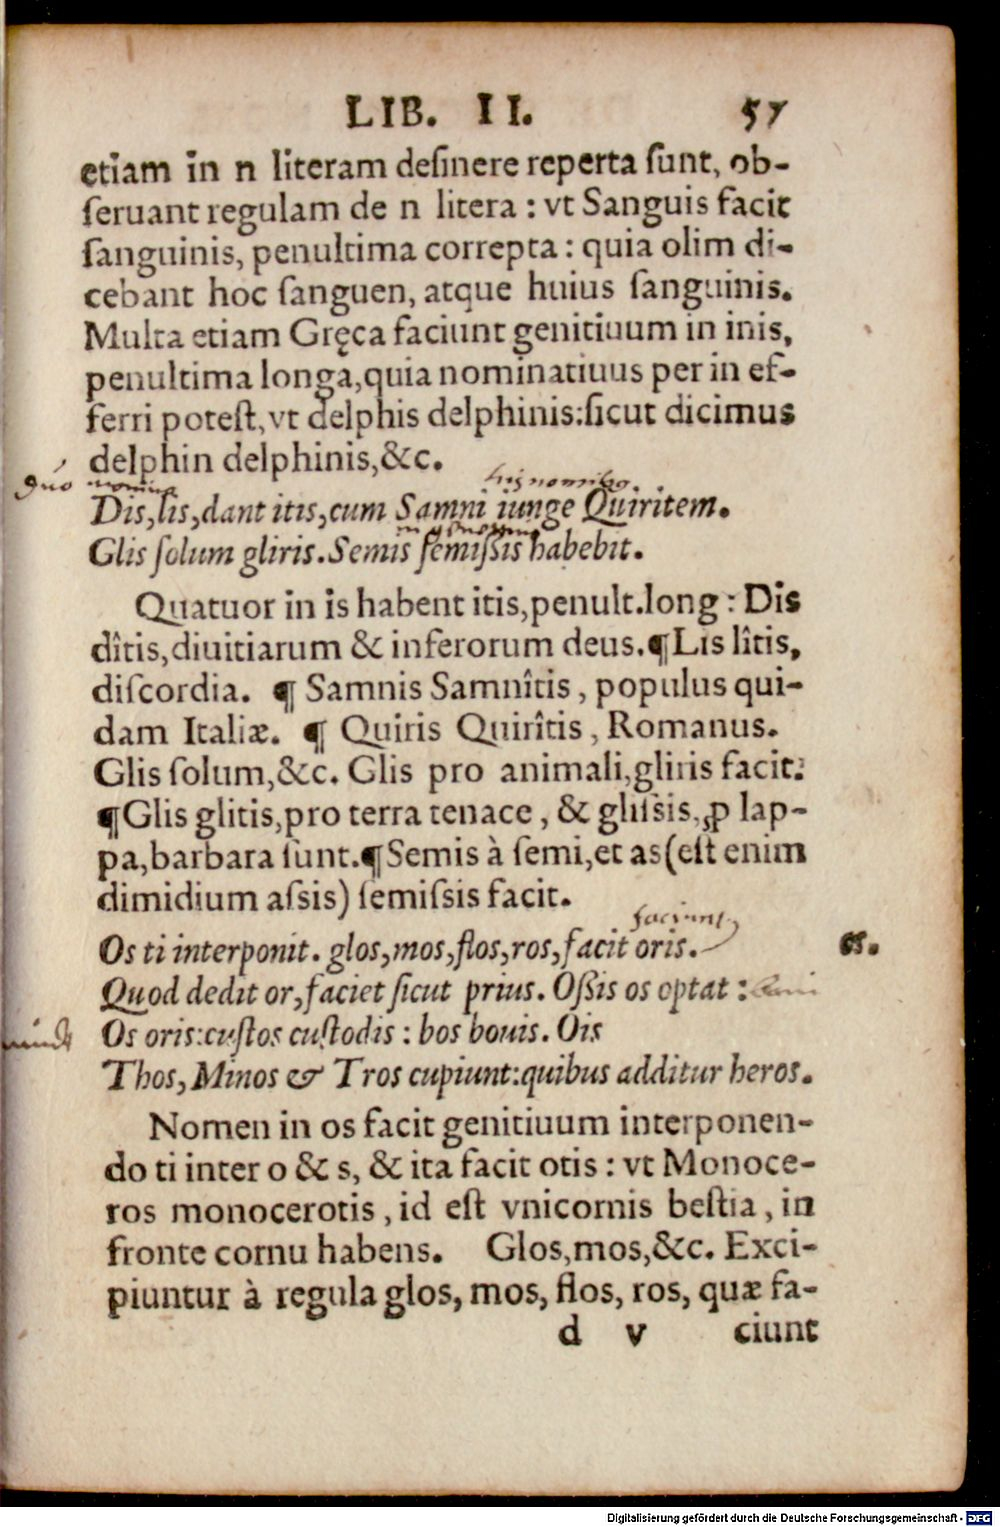 LIB. II. 57
etiam in n literam desinere reperta sunt, ob-
seruant regulam de n litera : vt Sanguis facit
sanguinis, penultima correpta : quia olim di-
cebant hoc sanguen, atque huius sanguinis.
Multa etiam Gręca faciunt genitiuum in inis,
penultima longa, quia nominatiuus per in ef-
ferri potest, vt delphis delphinis: sicut dicimus
delphin delphinis, &c.
duo nomina his nominibꝰ
Dis, lis, dant itis, cum Samni iunge Quiritem.
Glis solum gliris. Semis semissis habebit.
Quatuor in is habent itis, penult. long : Dis
dîtis, diuitiarum & inferorum deus. ¶ Lis lîtis,
discordia. ¶ Samnis Samnîtis, populus qui-
dam Italiæ. ¶ Quiris Quirîtis, Romanus.
Glis solum, &c. Glis pro animali, gliris facit:
¶ Glis glitis, pro terra tenace, & glissis, ꝓ lap-
pa, barbara sunt. ¶ Semis à semi, et as (est enim
dimidium assis) semissis facit.
faciunt
Os ti interponit. glos, mos, flos, ros, facit oris. os.
Quod dedit or, faciet sicut prius. Ossis os optat :
Os oris: custos custodis : bos bouis. Ois
Thos, Minos & Tros cupiunt: quibus additur heros.
Nomen in os facit genitiuum interponen-
do ti inter o & s, & ita facit otis : vt Monoce-
ros monocerotis, id est vnicornis bestia, in
fronte cornu habens. Glos, mos, &c. Exci-
piuntur à regula glos, mos, flos, ros, quæ fa-
d v ciunt
Digitalisierung gefördert durch die Deutsche Forschungsgemeinschaft - DFG